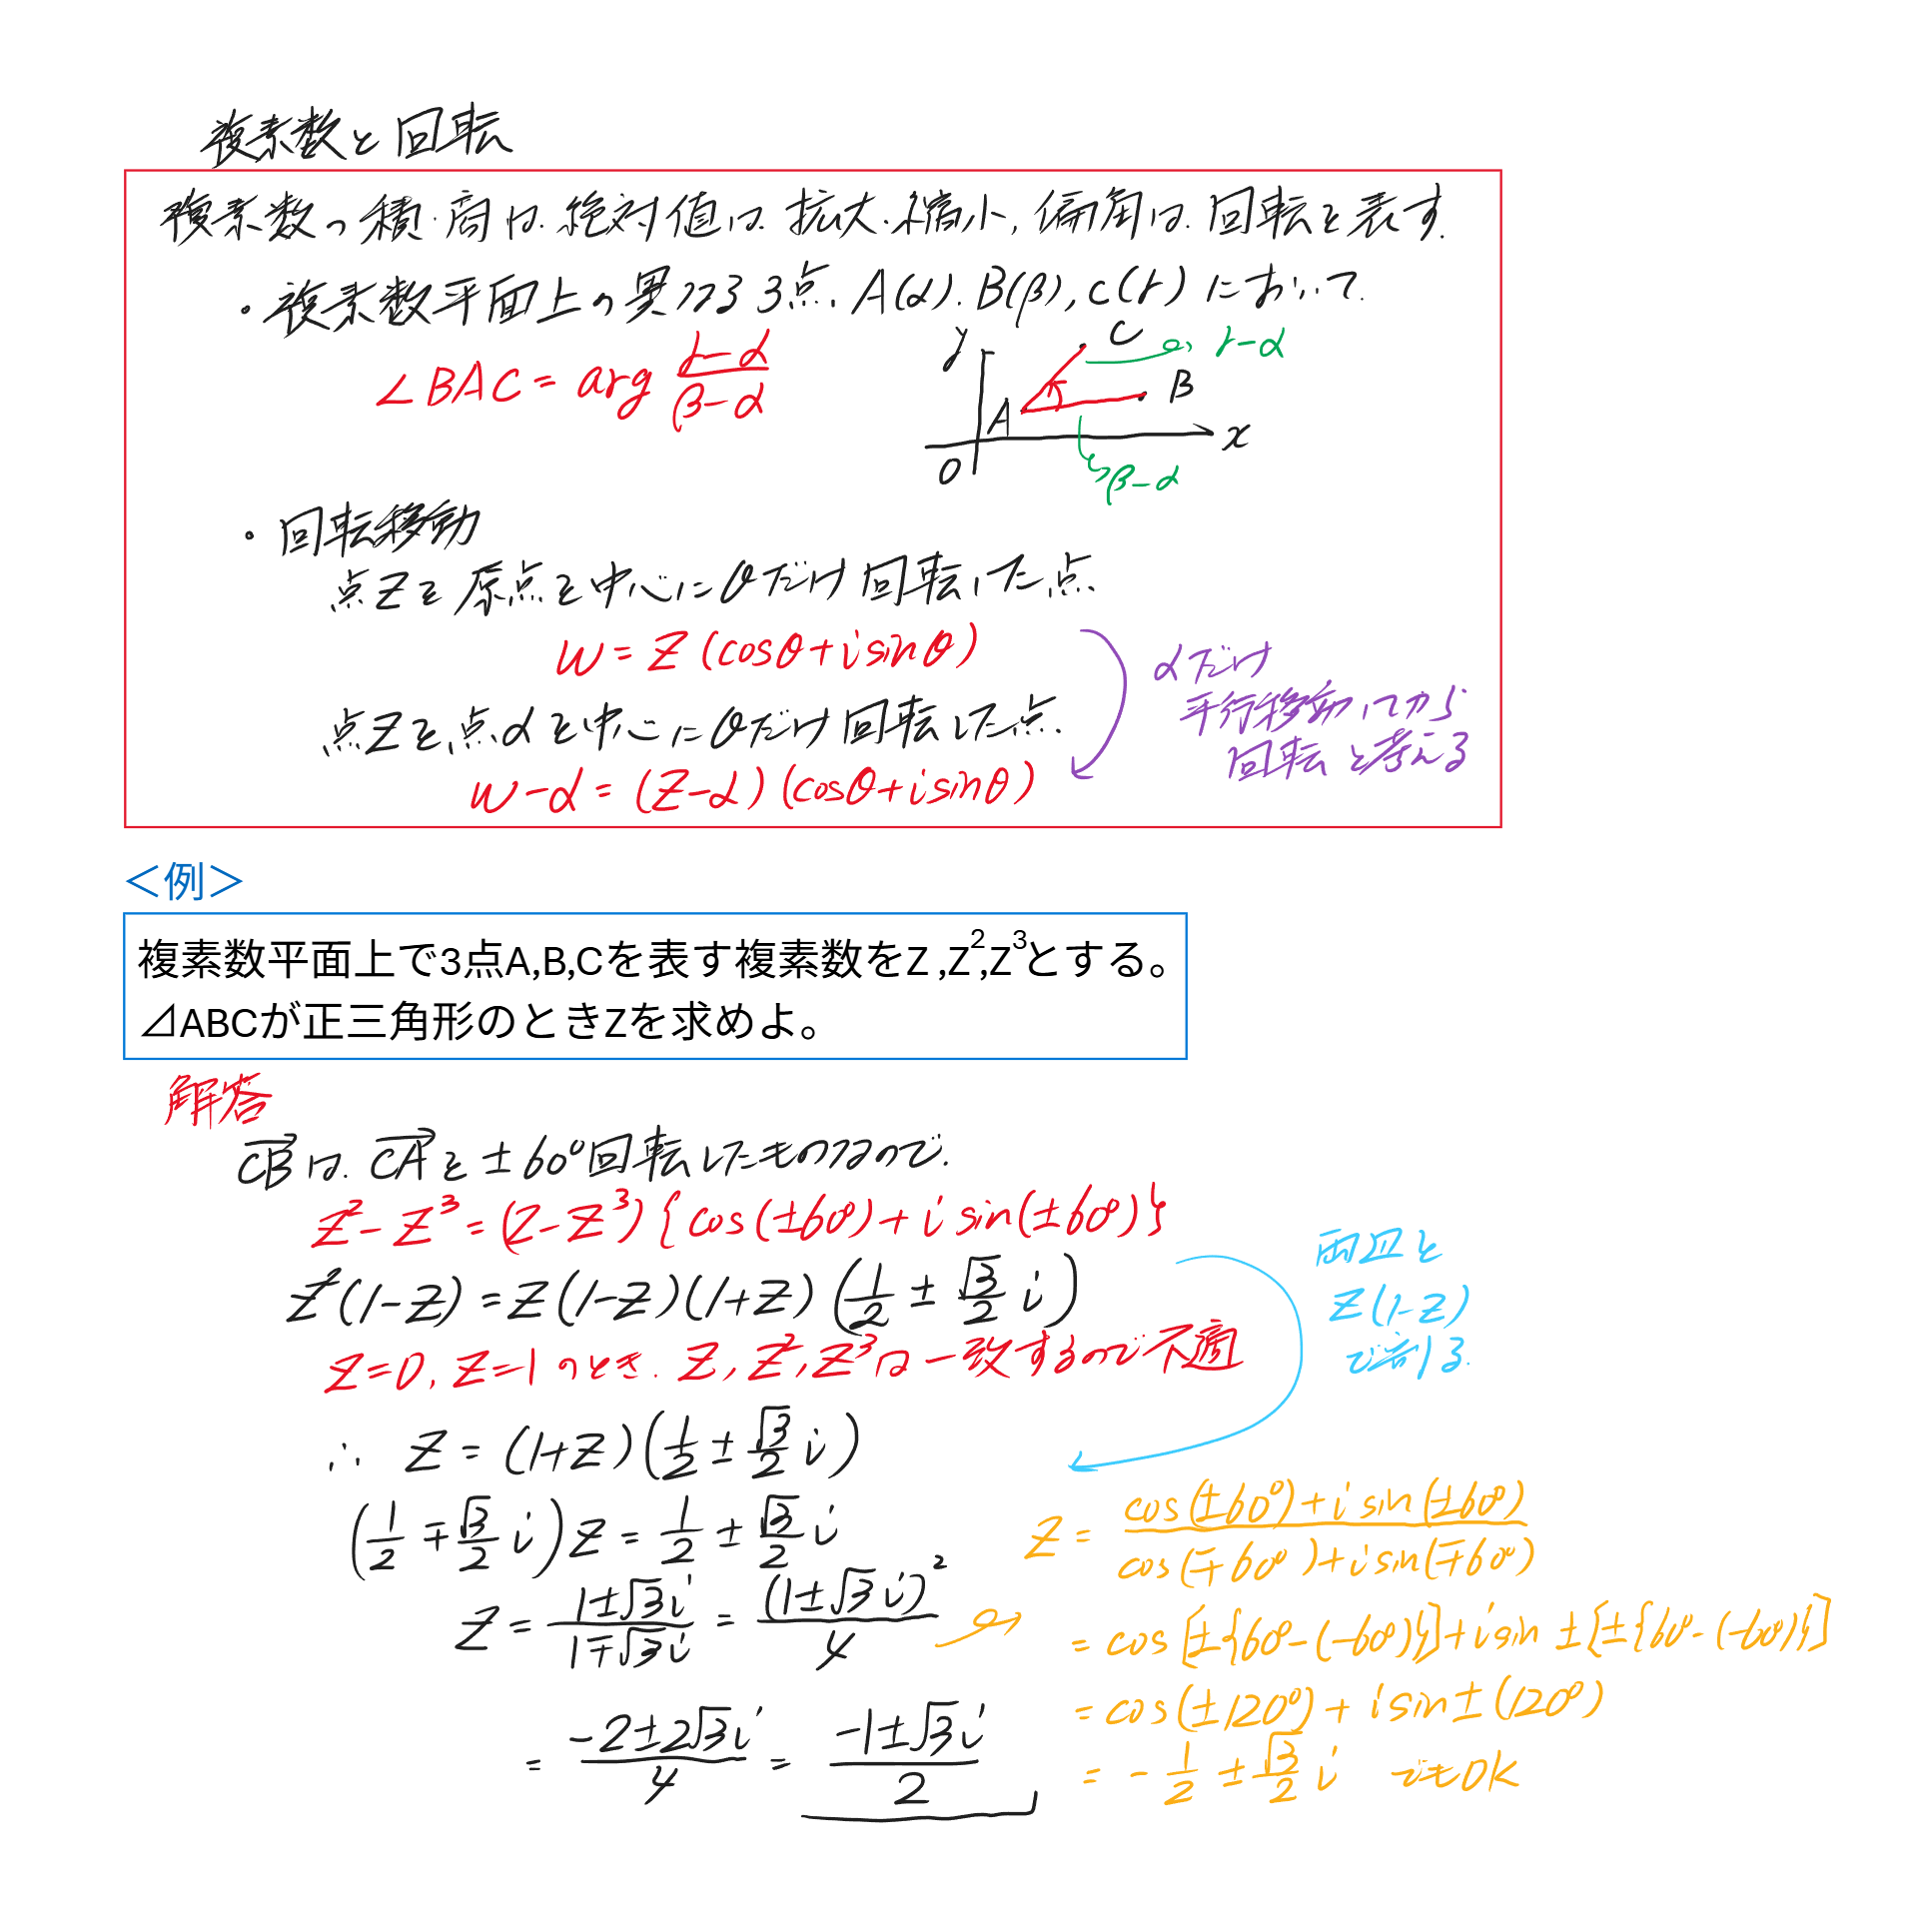 複素数と回転
複素数の積・商は、絶対値は、拡大・縮小, 偏角は、回転を表す.
・複素数平面上の異なる3点、A(α). B(β), C(γ) において
∠BAC = arg (γ-α)/(β-α)
y
C
γ-α
B
A
x
O
β-α
・回転移動
点Zを原点を中心にθだけ回転した点、
w = Z (cosθ+isinθ)
点Zを、点αを中心にθだけ回転した点.
w-α = (Z-α) (cosθ+isinθ)
αだけ
平行移動してから
回転と考える
＜例＞
複素数平面上で3点A,B,Cを表す複素数をZ ,Z²,Z³とする。
⊿ABCが正三角形のときZを求めよ。
解答
CB→は. CA→を±60°回転したものなので.
Z²-Z³=(Z-Z³){cos(±60°)+i sin(±60°)}
Z²(1-Z)=Z(1-Z)(1+Z)(1/2 ± √3/2 i)
Z=0, Z=1のとき. Z, Z², Z³は一致するので不適
両辺を
Z(1-Z)
で割る.
∴ Z = (1+Z)(1/2 ± √3/2 i)
(1/2 ∓ √3/2 i)Z = 1/2 ± √3/2 i
Z = (1±√3i)/(1∓√3i) = (1±√3i)²/4
= (-2±2√3i)/4 = (-1±√3i)/2
Z = (cos(±60°)+i sin(±60°))/(cos(∓60°)+i sin(∓60°))
= cos[±{60°-(-60°)}]+i sin ±[±{60°-(-60°)}]
= cos(±120°) + i sin±(120°)
= -1/2 ± √3/2 i でもOK